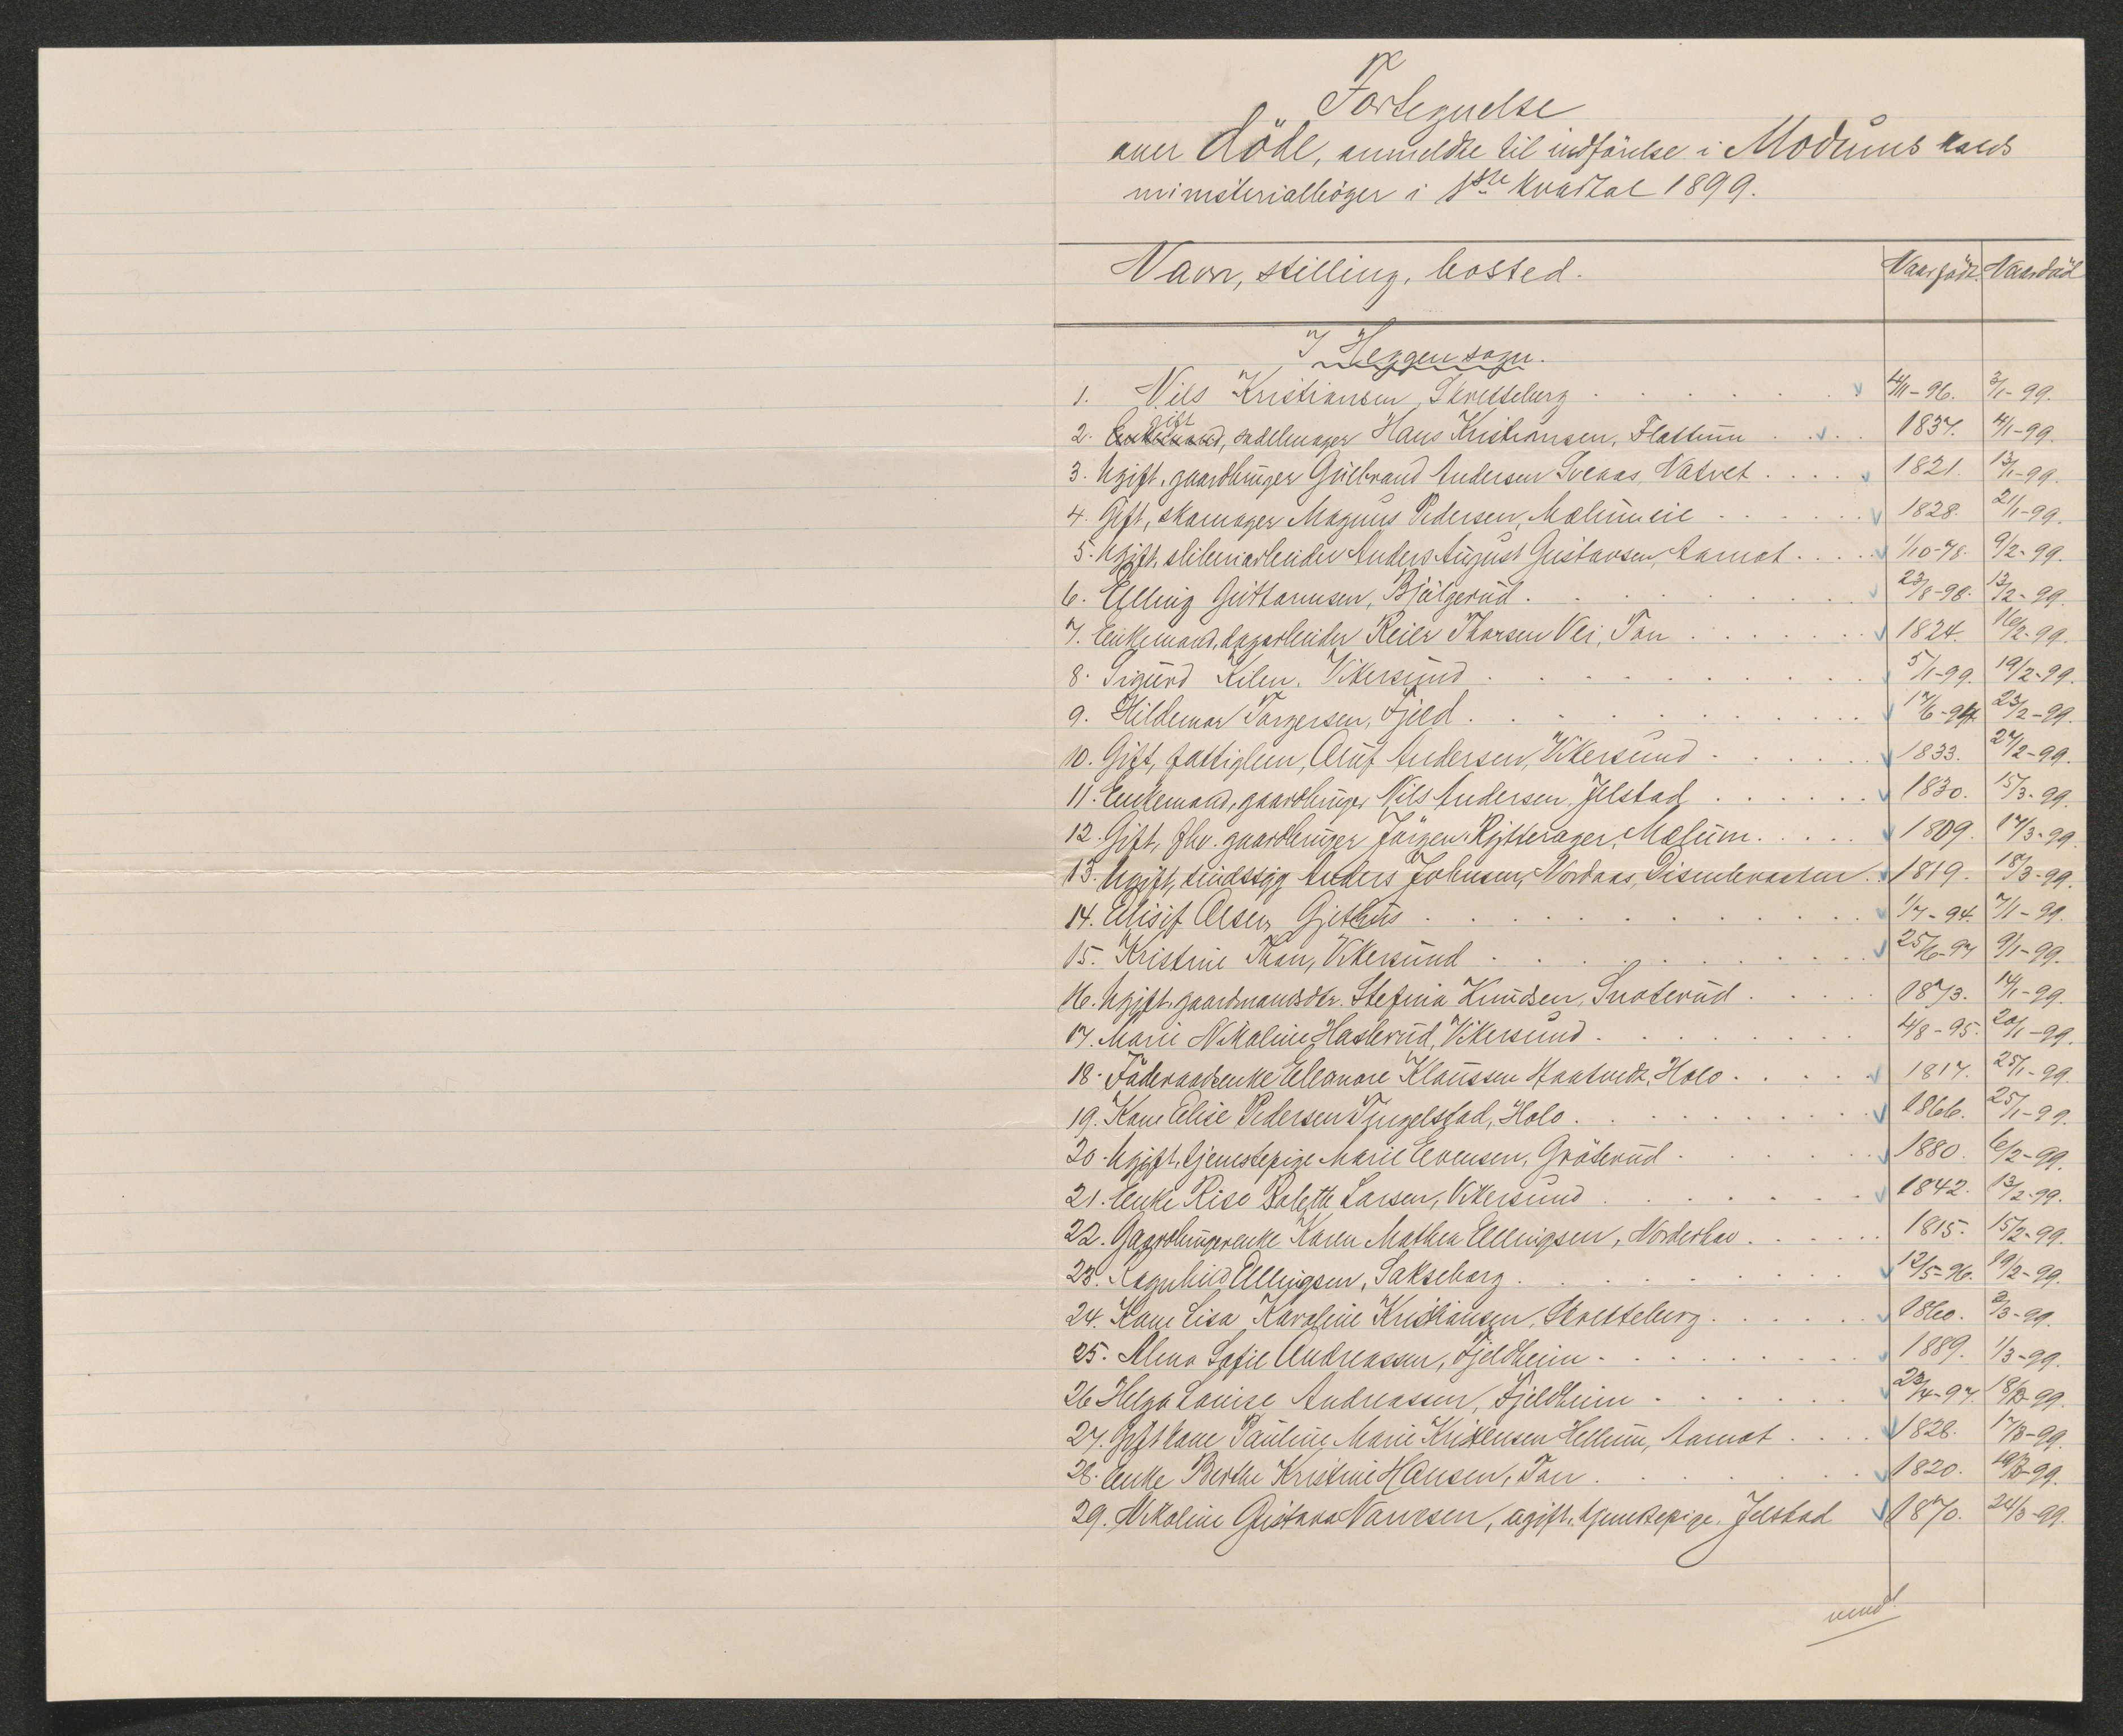 Fortegnelse
over döde, anmeldte til indförelse i Modums kalds
ministerialböger i 1ste kvartal 1899.
Navn, stilling, bosted. Naar född. Naar död
I Heggen sogn.
1. Nils Kristiansen, Skretteberg 4/11-96. 3/1-99.
2. gift Enkemand, sadelmager Hans Kristiansen, Flattum 1837. 4/1-99.
3. Ugift, gaardbruger Gulbrand Andersen Sveaas, Natvet 1821. 13/1-99.
4. Gift, skomager Magnus Pedersen, Mælumeie 1828. 21/1-99.
5. Ugift, sliberiarbeider Anders August Gustavsen, Aamot 1/10-78. 9/2-99.
6. Elling Guttormsen, Bjölgerud 23/8-98. 13/2-99.
7. Enkemand, dagarbeider Reier Thorsen Vei, Ton 1824. 16/2-99.
8. Sigurd Kilen, Vikersund 5/1-99. 19/2-99.
9. Hildemar Torgersen, Fjeld 17/6-94. 23/2-99.
10. Gift, fattiglem, Oluf Andersen, Vikersund 1833. 27/2-99.
11. Enkemand, gaardbruger Nils Andersen Jelstad 1830. 15/3-99.
12. Gift, fhv. gaardbruger Jörgen Rytterager, Mælum 1809. 17/3-99.
13. Ugift, sindssyg Anders Johnsen, Nordaas, Disenbraaten 1819. 18/3-99.
14. Edisif Olsen Gjethus 1/7-94. 7/1-99.
15. Kristine Thon, Vikersund 25/6-97 9/1-99.
16. Ugift, gaardmandsdtr. Stefina Knudsen, Snoterud 1873. 14/1-99.
17. Marie Nikoline Haslerud, Vikersund 4/8-95. 20/1-99.
18. Föderaadsenke Eleonore Klaussen Haatvedt, Holo 1817. 25/1-99.
19. Kone Elise Pedersen Tingelstad, Holo 1866. 25/1-99.
20. Ugift, tjenestepige Marie Evensen, Gröterud 1880. 6/2-99.
21. Enke Riso Bolette Larsen, Vikersund 1842. 13/2-99.
22. Gaardbrugerenke Karen Mathea Ellingsen, Norderhov 1815. 15/2-99.
23. Ragnhild Ellingsen, Sakseborg 12/5-96. 19/2-99.
24. Kone Lisa Karoline Kristiansen, Skretteberg 1860. 2/3-99.
25. Alma Sofie Andreassen, Fjeldheim 1889. 1/3-99.
26 Helga Louise Andreassen, Fjeldheim 23/4-97. 18/3-99.
27. Gift kone Pauline Marie Kristensen Hellum, Aamot 1828. 17/3-99.
28. Enke Berthe Kristine Hansen, Ton 1820. 19/3-99.
29. Nikoline Gustava Nanesen, ugift, tjenestepige, Jelstad 1870. 24/3-99.
vend!